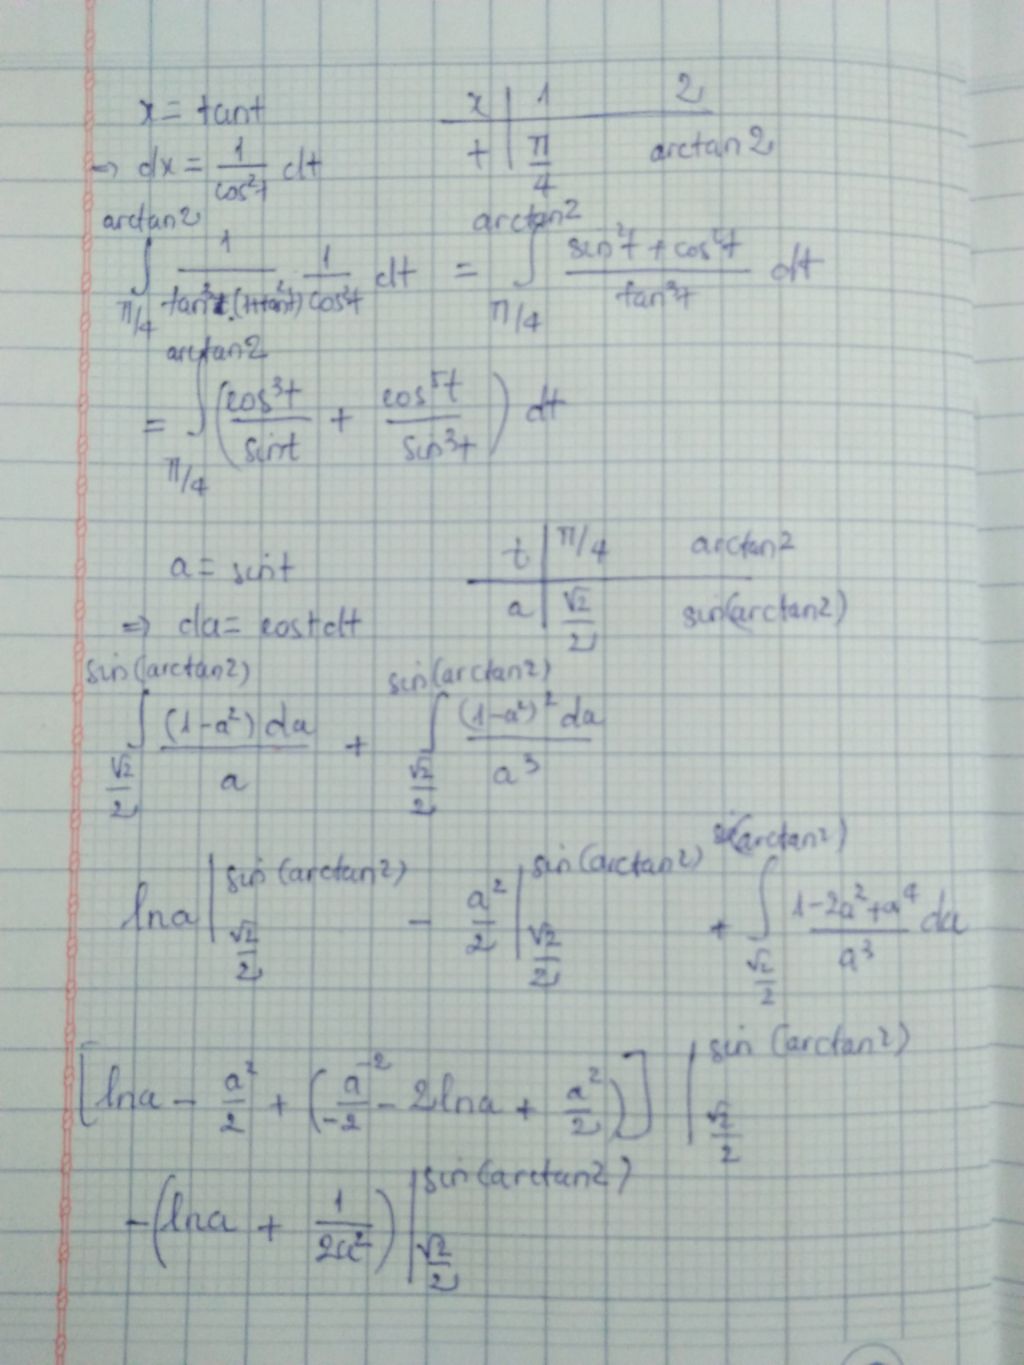 x = tant
x | 1 2
⇒ dx = 1/cos²t dt
t | π/4 arctan2
∫_{π/4}^{arctan2} 1/(tan³t.(1+tan²t)) · 1/cos²t dt = ∫_{π/4}^{arctan2} (sin²t + cos²t)/tan³t dt
= ∫_{π/4}^{arctan2} (cos³t/sint + cos⁵t/sin³t) dt
a = sint
t | π/4 arctan2
⇒ da = costdt
a | √2/2 sin(arctan2)
∫_{√2/2}^{sin(arctan2)} (1-a²)da/a + ∫_{√2/2}^{sin(arctan2)} (1-a²)²da/a³
lna |_{√2/2}^{sin(arctan2)} - a²/2 |_{√2/2}^{sin(arctan2)} + ∫_{√2/2}^{sin(arctan2)} (1-2a²+a⁴)/a³ da
[lna - a²/2 + (a⁻²/-2 - 2lna + a²/2)] |_{√2/2}^{sin(arctan2)}
-(lna + 1/2a²) |_{√2/2}^{sin(arctan2)}